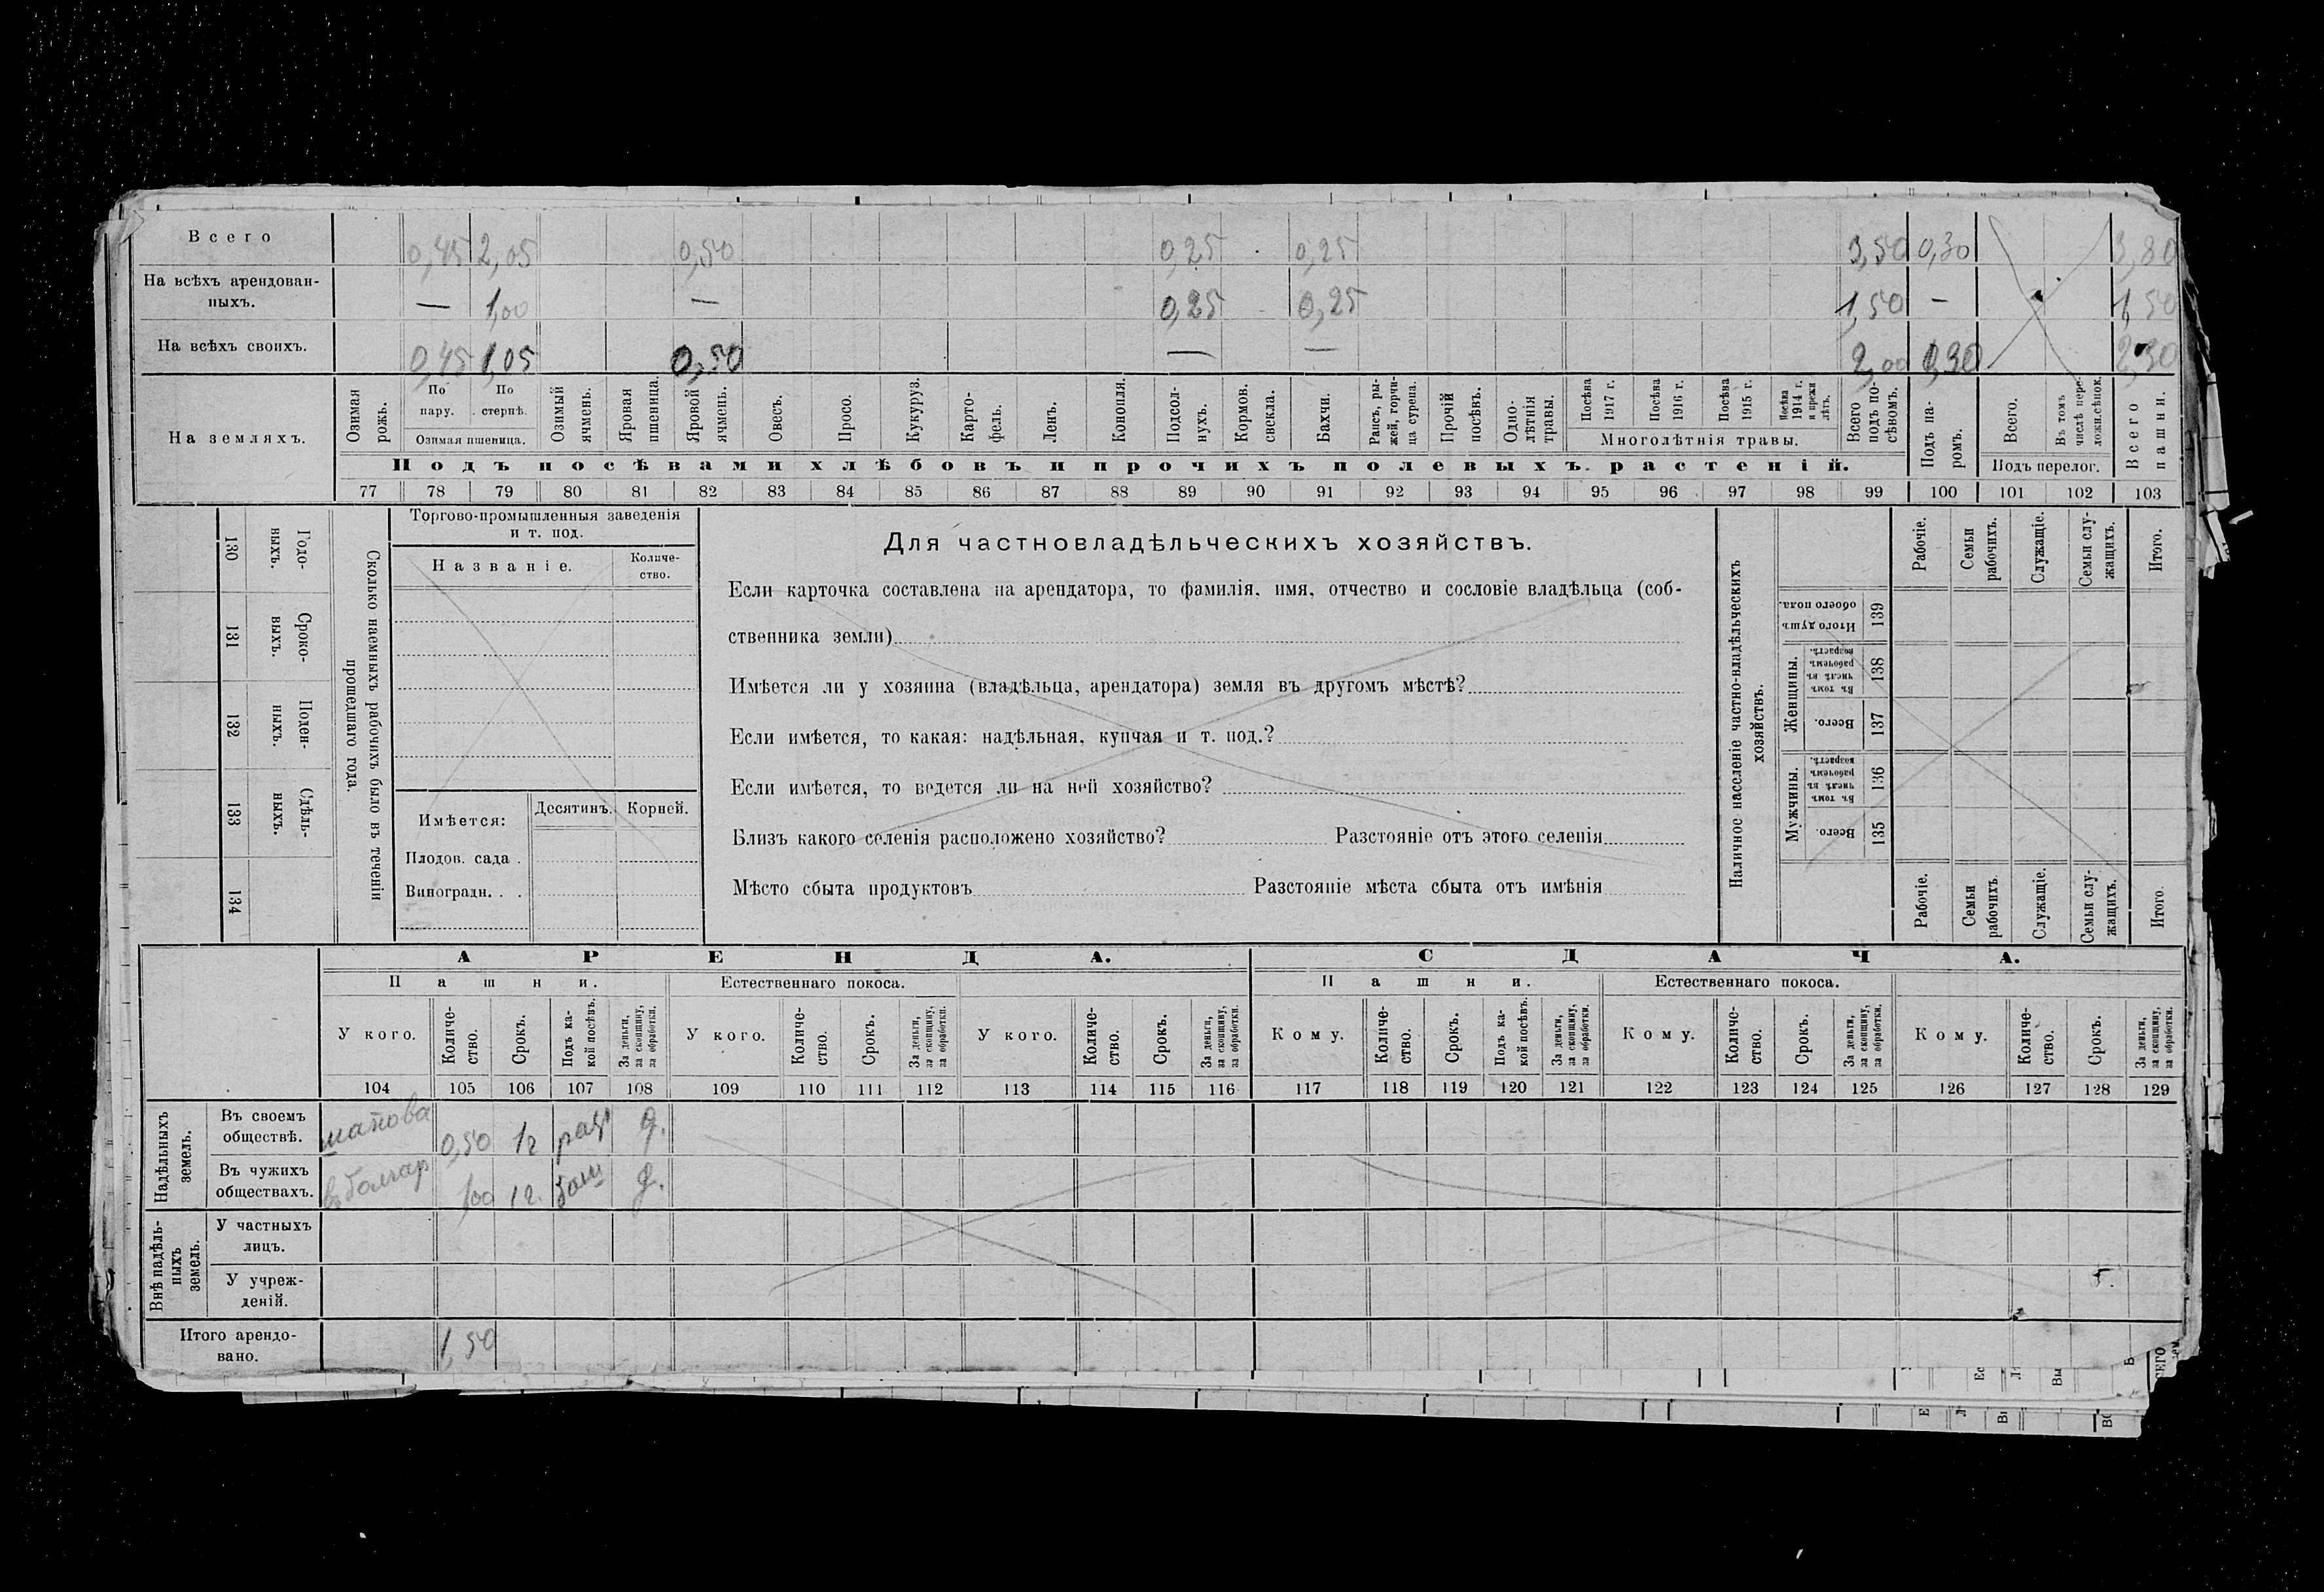 Всего 0,45 2,05 0,50 0,25 0,25 3,50 0,30 3,80
На всѣхъ арендован-
ныхъ. — 1,00 — 0,25 0,25 1,50 — 1,50
На всѣхъ своихъ. 0,45 1,05 0,50 — — 2,00 0,30 2,30
На земляхъ.
Озимая рожь.
По пару.
По стернѣ.
Озимая пшеница.
Озимый ячмень.
Яровая пшеница.
Яровой ячмень.
Овесъ.
Просо.
Кукуруз.
Карто-
фель.
Ленъ.
Конопля.
Подсол-
нухъ.
Кормов.
свекла.
Бахчи.
Рапсъ, ры-
жей, горчи-
ца сурепа.
Прочій
посѣвъ.
Одно-
лѣтнія
травы.
Посѣва
1917 г.
Посѣва
1916 г.
Посѣва
1915 г.
Посѣва
1914 г.
и прежн
лѣтъ.
Многолѣтнія травы.
Всего
подъ по-
сѣвомъ.
Подъ па-
ромъ.
Всего.
Въ томъ
числѣ пере-
ложн.сѣнок.
Подъ перелог.
Всего
пашни.
Подъ посѣвами хлѣбовъ и прочихъ полевыхъ растеній.
77 78 79 80 81 82 83 84 85 86 87 88 89 90 91 92 93 94 95 96 97 98 99 100 101 102 103
130
Годо-
ныхъ.
131
Сроко-
выхъ.
132
Поден-
ныхъ.
133
Сдѣль-
ныхъ.
134
Сколько наемныхъ рабочихъ было въ теченіи
прошедшаго года.
Торгово-промышленныя заведенія
и т. под.
Названіе.
Количе-
ство.
Имѣется:
Десятинъ.
Корней.
Плодов. сада .
Виноградн. . .
Для частновладѣльческихъ хозяйствъ.
Если карточка составлена на арендатора, то фамилія, имя, отчество и сословіе владѣльца (соб-
ственника земли)
Имѣется ли у хозяина (владѣльца, арендатора) земля въ другомъ мѣстѣ?
Если имѣется, то какая: надѣльная, купчая и т. под.?
Если имѣется, то ведется ли на ней хозяйство?
Близъ какого селенія расположено хозяйство? Разстояніе отъ этого селенія
Мѣсто сбыта продуктовъ Разстояніе мѣста сбыта отъ имѣнія
Наличное населеніе частно-владѣльческихъ
хозяйствъ.
Итого душъ
обоего пола.
139
Женщины.
Въ томъ
числѣ въ
рабочемъ
возрастѣ.
138
Всего.
137
Мужчины.
Въ томъ
числѣ въ
рабочемъ
возрастѣ.
136
Всего.
135
Рабочіе.
Семьи
рабочихъ.
Служащіе.
Семьи слу-
жащихъ.
Итого.
Рабочіе.
Семьи
рабочихъ
Служащіе.
Семьи слу-
жащихъ.
Итого
АРЕНДА.
СДАЧА.
Пашни.
Естественнаго покоса.
Пашни.
Естественнаго покоса.
У кого.
Количе-
ство.
Срокъ.
Подъ ка-
кой посѣвъ.
За деньги,
за скопщину,
за обработки.
У кого.
Количе-
ство.
Срокъ.
За деньги,
за скопщину,
за обработки.
У кого.
Количе-
ство.
Срокъ.
За деньги,
за скопщину,
за обработки.
Кому.
Количе-
ство.
Срокъ.
Подъ ка-
кой посѣвъ.
За деньги,
за скопщину,
за обработки.
Кому.
Количе-
ство.
Срокъ.
За деньги,
за скопщину,
за обработки.
Кому.
Количе-
ство.
Срокъ.
За деньги,
за скопщину,
за обработки.
104 105 106 107 108 109 110 111 112 113 114 115 116 117 118 119 120 121 122 123 124 125 126 127 128 129
Надѣльныхъ
земель.
Въ своемъ
обществѣ. 0,50 1г д.
Въ чужихъ
обществахъ. 1,00 1 г. д.
Внѣ надѣль-
ныхъ
земель.
У частныхъ
лицъ.
У учреж-
деній.
Итого арендо-
вано. 1,50